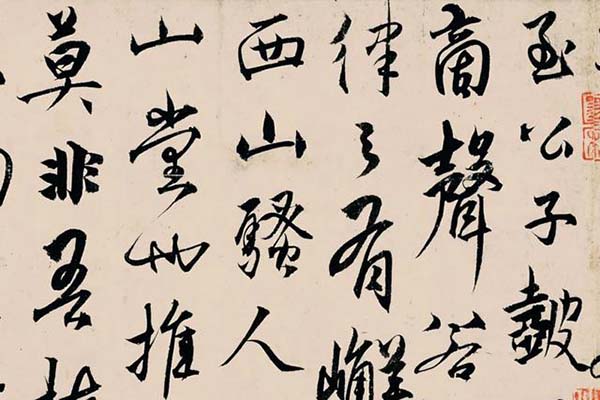 至公子皷
商聲谷
律之有
西山騷人
山堂此推
莫非吾